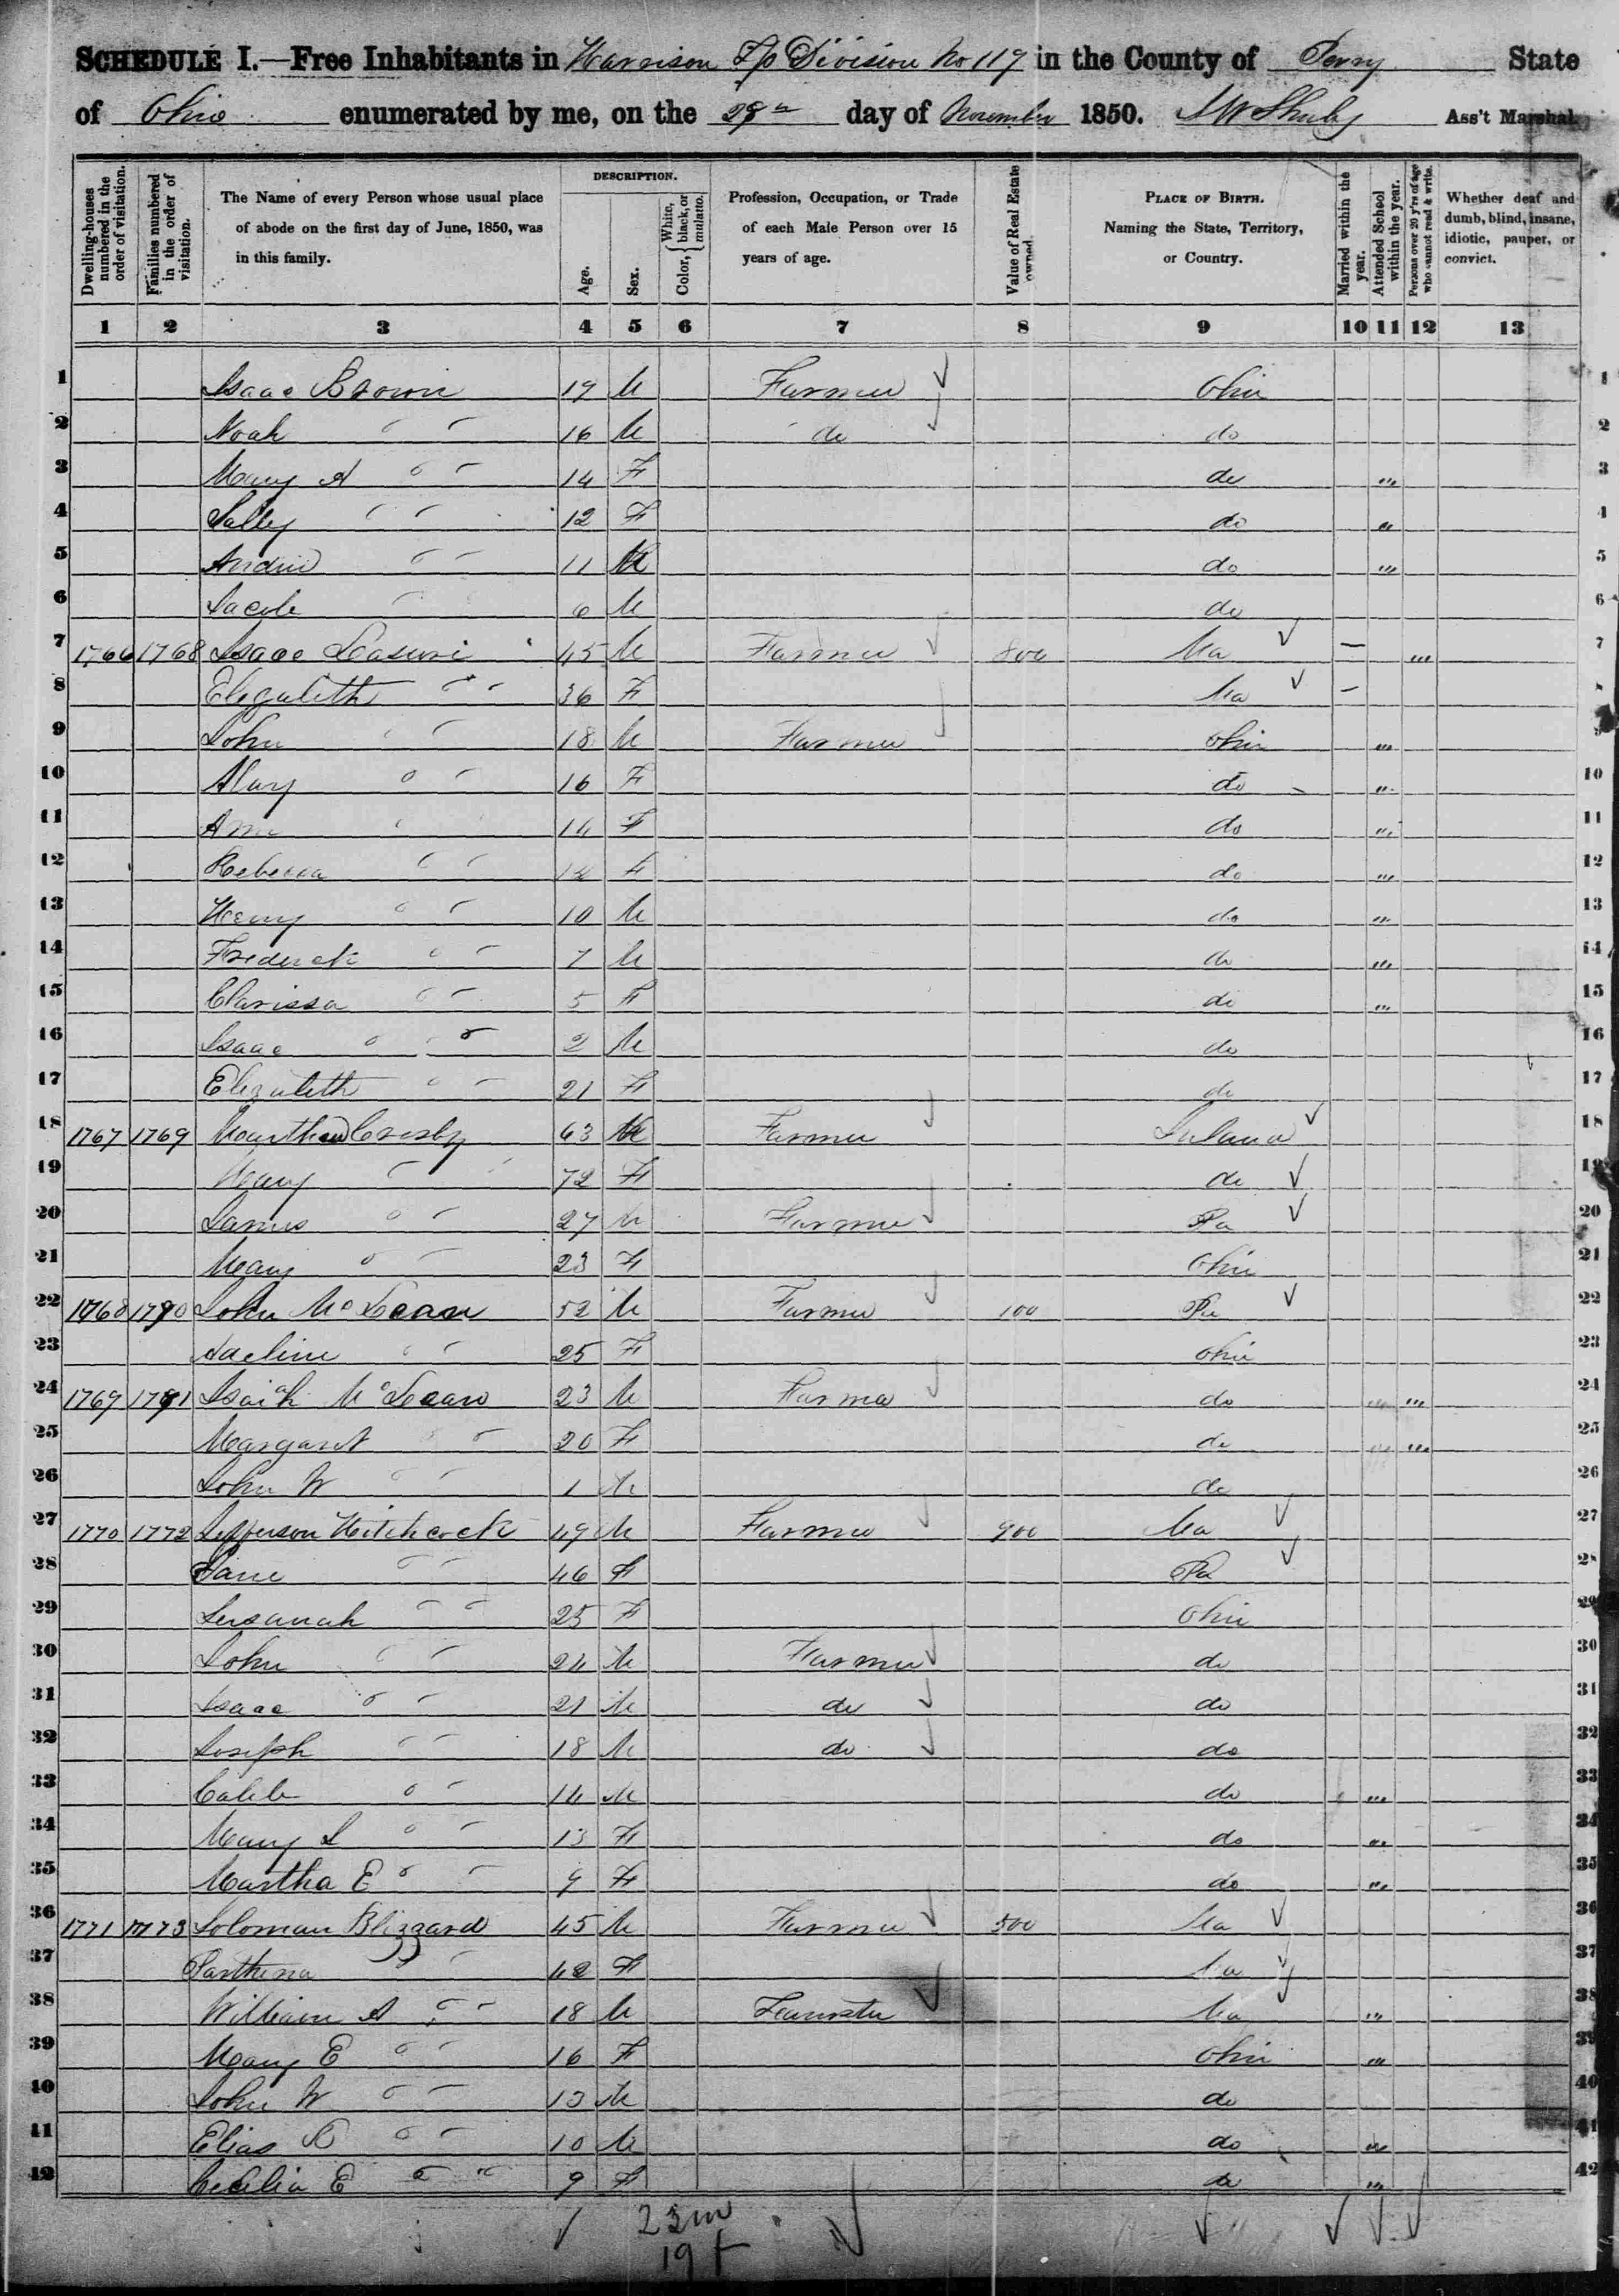 SCHEDULE I.—Free Inhabitants in Harrison Tp Division No 117 in the County of Perry State
of Ohio enumerated by me, on the 28th day of November 1850. Ass't Marshal.
Dwelling-houses numbered in the order of visitation.
Families numbered in the order of visitation.
The Name of every Person whose usual place of abode on the first day of June, 1850, was in this family.
DESCRIPTION.
Age.
Sex.
Color, { White, black, or mulatto.
Profession, Occupation, or Trade of each Male Person over 15 years of age.
Value of Real Estate owned.
PLACE OF BIRTH. Naming the State, Territory, or Country.
Married within the year.
Attended School within the year.
Persons over 20 y'rs of age who cannot read & write.
Whether deaf and dumb, blind, insane, idiotic, pauper, or convict.
1 2 3 4 5 6 7 8 9 10 11 12 13
1 Isaac Brown 19 M Farmer Ohio 1
2 Noah " " 16 M do do 2
3 Mary A " " 14 F do " 3
4 Sally " " 12 F do " 4
5 " " 11 M do " 5
6 Jacob " 6 M do 6
7 1766 1768 Isaac Leasure 45 M Farmer 800 — " 7
8 Elizabeth " " 36 F — 8
9 John " " 18 M Farmer Ohio " 9
10 Mary " " 16 F do " 10
11 Ann " 14 F do " 11
12 Rebecca " " 12 F do " 12
13 Henry " " 10 M do " 13
14 Frederick " " 7 M do " 14
15 Clarissa " " 5 F do " 15
16 Isaac " " 2 M do 16
17 Elizabeth " " 21 F do 17
18 1767 1769 Crosby 63 M Farmer Ireland 18
19 Mary " 72 F do 19
20 James " " 27 M Farmer Pa 20
21 Mary " " 23 F Ohio 21
22 1768 1770 John McLean 52 M Farmer 100 Pa 22
23 Adeline " " 25 F Ohio 23
24 1769 1771 Isaiah McLean 23 M Farmer do " " 24
25 Margaret " " 20 F do " " 25
26 John W " " 1 M do 26
27 1770 1772 Jefferson Hitchcock 49 M Farmer 900 27
28 Jane " " 46 F Pa 28
29 Susanah " " 25 F Ohio 29
30 John " " 24 M Farmer do 30
31 Isaac " " 21 M do do 31
32 Joseph " " 18 M do do 32
33 Caleb " " 14 M do " 33
34 Mary " " 13 F do " 34
35 Martha E " " 9 F do " 35
36 1771 1773 Soloman Blizzard 45 M Farmer 500 36
37 Parthena " " 42 F 37
38 William A " " 18 M Teamster " 38
39 Mary E " " 16 F Ohio " 39
40 John W " " 13 M do 40
41 Elias " " 10 M do " 41
42 Cecelia E " " 9 F do " 42
23 m
19 f